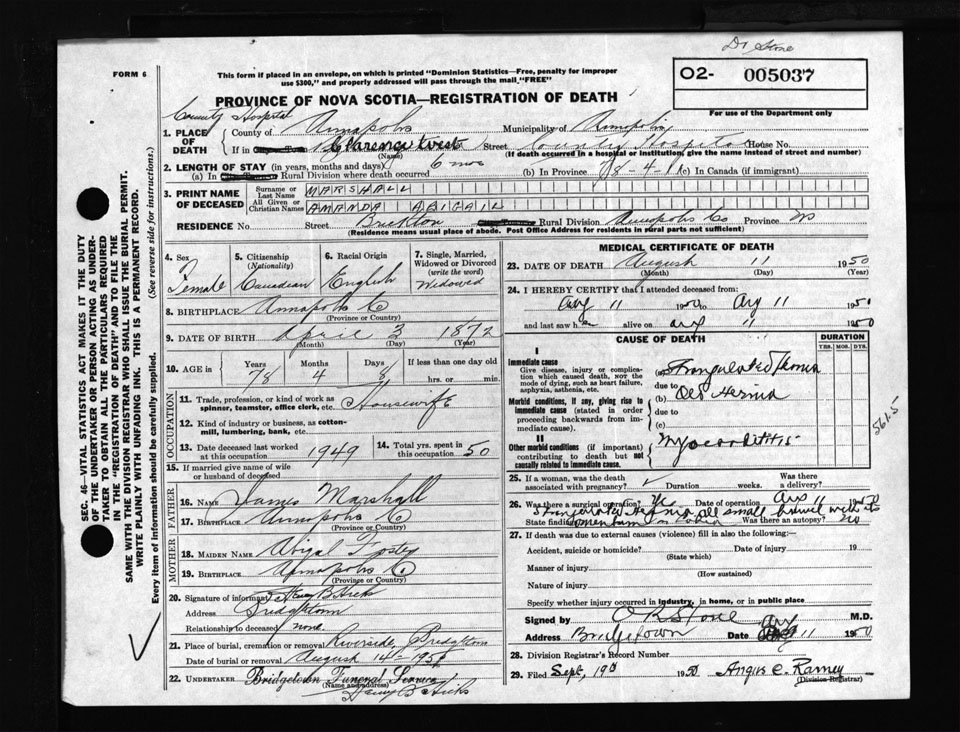 Dr Stone
FORM 6
This form if placed in an envelope, on which is printed "Dominion Statistics—Free, penalty for improper
use $300," and properly addressed will pass through the mail, "FREE"
O2- 005037
For use of the Department only
PROVINCE OF NOVA SCOTIA—REGISTRATION OF DEATH
County Hospital
1. PLACE OF DEATH
County of Annapolis Municipality of Annapolis
If in Clarence West Street County Hospital House No.
(Name) (If death occurred in a hospital or institution, give the name instead of street and number)
2. LENGTH OF STAY (in years, months and days)
(a) In Rural Division where death occurred 6 mos (b) In Province 78-4-11 (c) In Canada (if immigrant)
3. PRINT NAME OF DECEASED
Surname or Last Name MARSHALL
All Given or Christian Names AMANDA ABIGAIL
RESIDENCE No. Street Rural Division Annapolis Co Province NS
(Residence means usual place of abode. Post Office Address for residents in rural parts not sufficient)
4. Sex
Female
5. Citizenship
(Nationality)
Canadian
6. Racial Origin
English
7. Single, Married, Widowed or Divorced
(write the word)
Widowed
8. BIRTHPLACE Annapolis Co
(Province or Country)
9. DATE OF BIRTH April 3 1872
(Month) (Day) (Year)
10. AGE in Years Months Days If less than one day old
78 4 8 hrs. or min.
OCCUPATION
11. Trade, profession, or kind of work as
spinner, teamster, office clerk, etc. Housewife
12. Kind of industry or business, as cotton-
mill, lumbering, bank, etc.
13. Date deceased last worked
at this occupation 1949
14. Total yrs. spent in
this occupation 50
15. If married give name of wife
or husband of deceased
FATHER
16. NAME James Marshall
17. BIRTHPLACE Annapolis Co
(Province or Country)
MOTHER
18. MAIDEN NAME Abigal Foster
19. BIRTHPLACE Annapolis Co
(Province or Country)
20. Signature of informant B Hicks
Address Bridgetown
Relationship to deceased none
21. Place of burial, cremation or removal Riverside, Bridgetown
Date of burial or removal August 14 1950
22. UNDERTAKER Bridgetown Funeral Service
(Name and address)
B Hicks
MEDICAL CERTIFICATE OF DEATH
23. DATE OF DEATH August 11 1950
(Month) (Day) (Year)
24. I HEREBY CERTIFY that I attended deceased from:
Aug 11 1950 to Aug 11 1950
and last saw her alive on Aug 11 1950
CAUSE OF DEATH
DURATION
YRS. MOS. DYS.
I
Immediate cause
Give disease, injury or complica-
tion which caused death, not the
mode of dying, such as heart failure,
asphyxia, asthenia, etc.
(a) Strangulated Hernia
due to
Morbid conditions, if any, giving rise to
immediate cause (stated in order
proceeding backwards from im-
mediate cause).
(b) Old Hernia
due to
(c)
II
Other morbid conditions (if important)
contributing to death but not
causally related to immediate cause.
Myocarditis
561.5
25. If a woman, was the death
associated with pregnancy? Duration weeks. Was there a delivery?
26. Was there a surgical operation? Yes Date of operation Aug 11 1950
State findings Was there an autopsy? no
27. If death was due to external causes (violence) fill in also the following:—
Accident, suicide or homicide? Date of injury 19
(State which)
Manner of injury
(How sustained)
Nature of injury
Specify whether injury occurred in industry, in home, or in public place
Signed by Stone M.D.
Address Bridgetown Date Aug 11 1950
28. Division Registrar's Record Number
29. Filed Sept. 19 1950 Angus C. Ramey
(Division Registrar)
SEC. 46—VITAL STATISTICS ACT MAKES IT THE DUTY
OF THE UNDERTAKER OR PERSON ACTING AS UNDER-
TAKER TO OBTAIN ALL THE PARTICULARS REQUIRED
IN THE "REGISTRATION OF DEATH" AND TO FILE THE
SAME WITH THE DIVISION REGISTRAR WHO SHALL ISSUE THE BURIAL PERMIT.
WRITE PLAINLY WITH UNFADING INK. THIS IS A PERMANENT RECORD.
Every item of information should be carefully supplied. (See reverse side for instructions.)